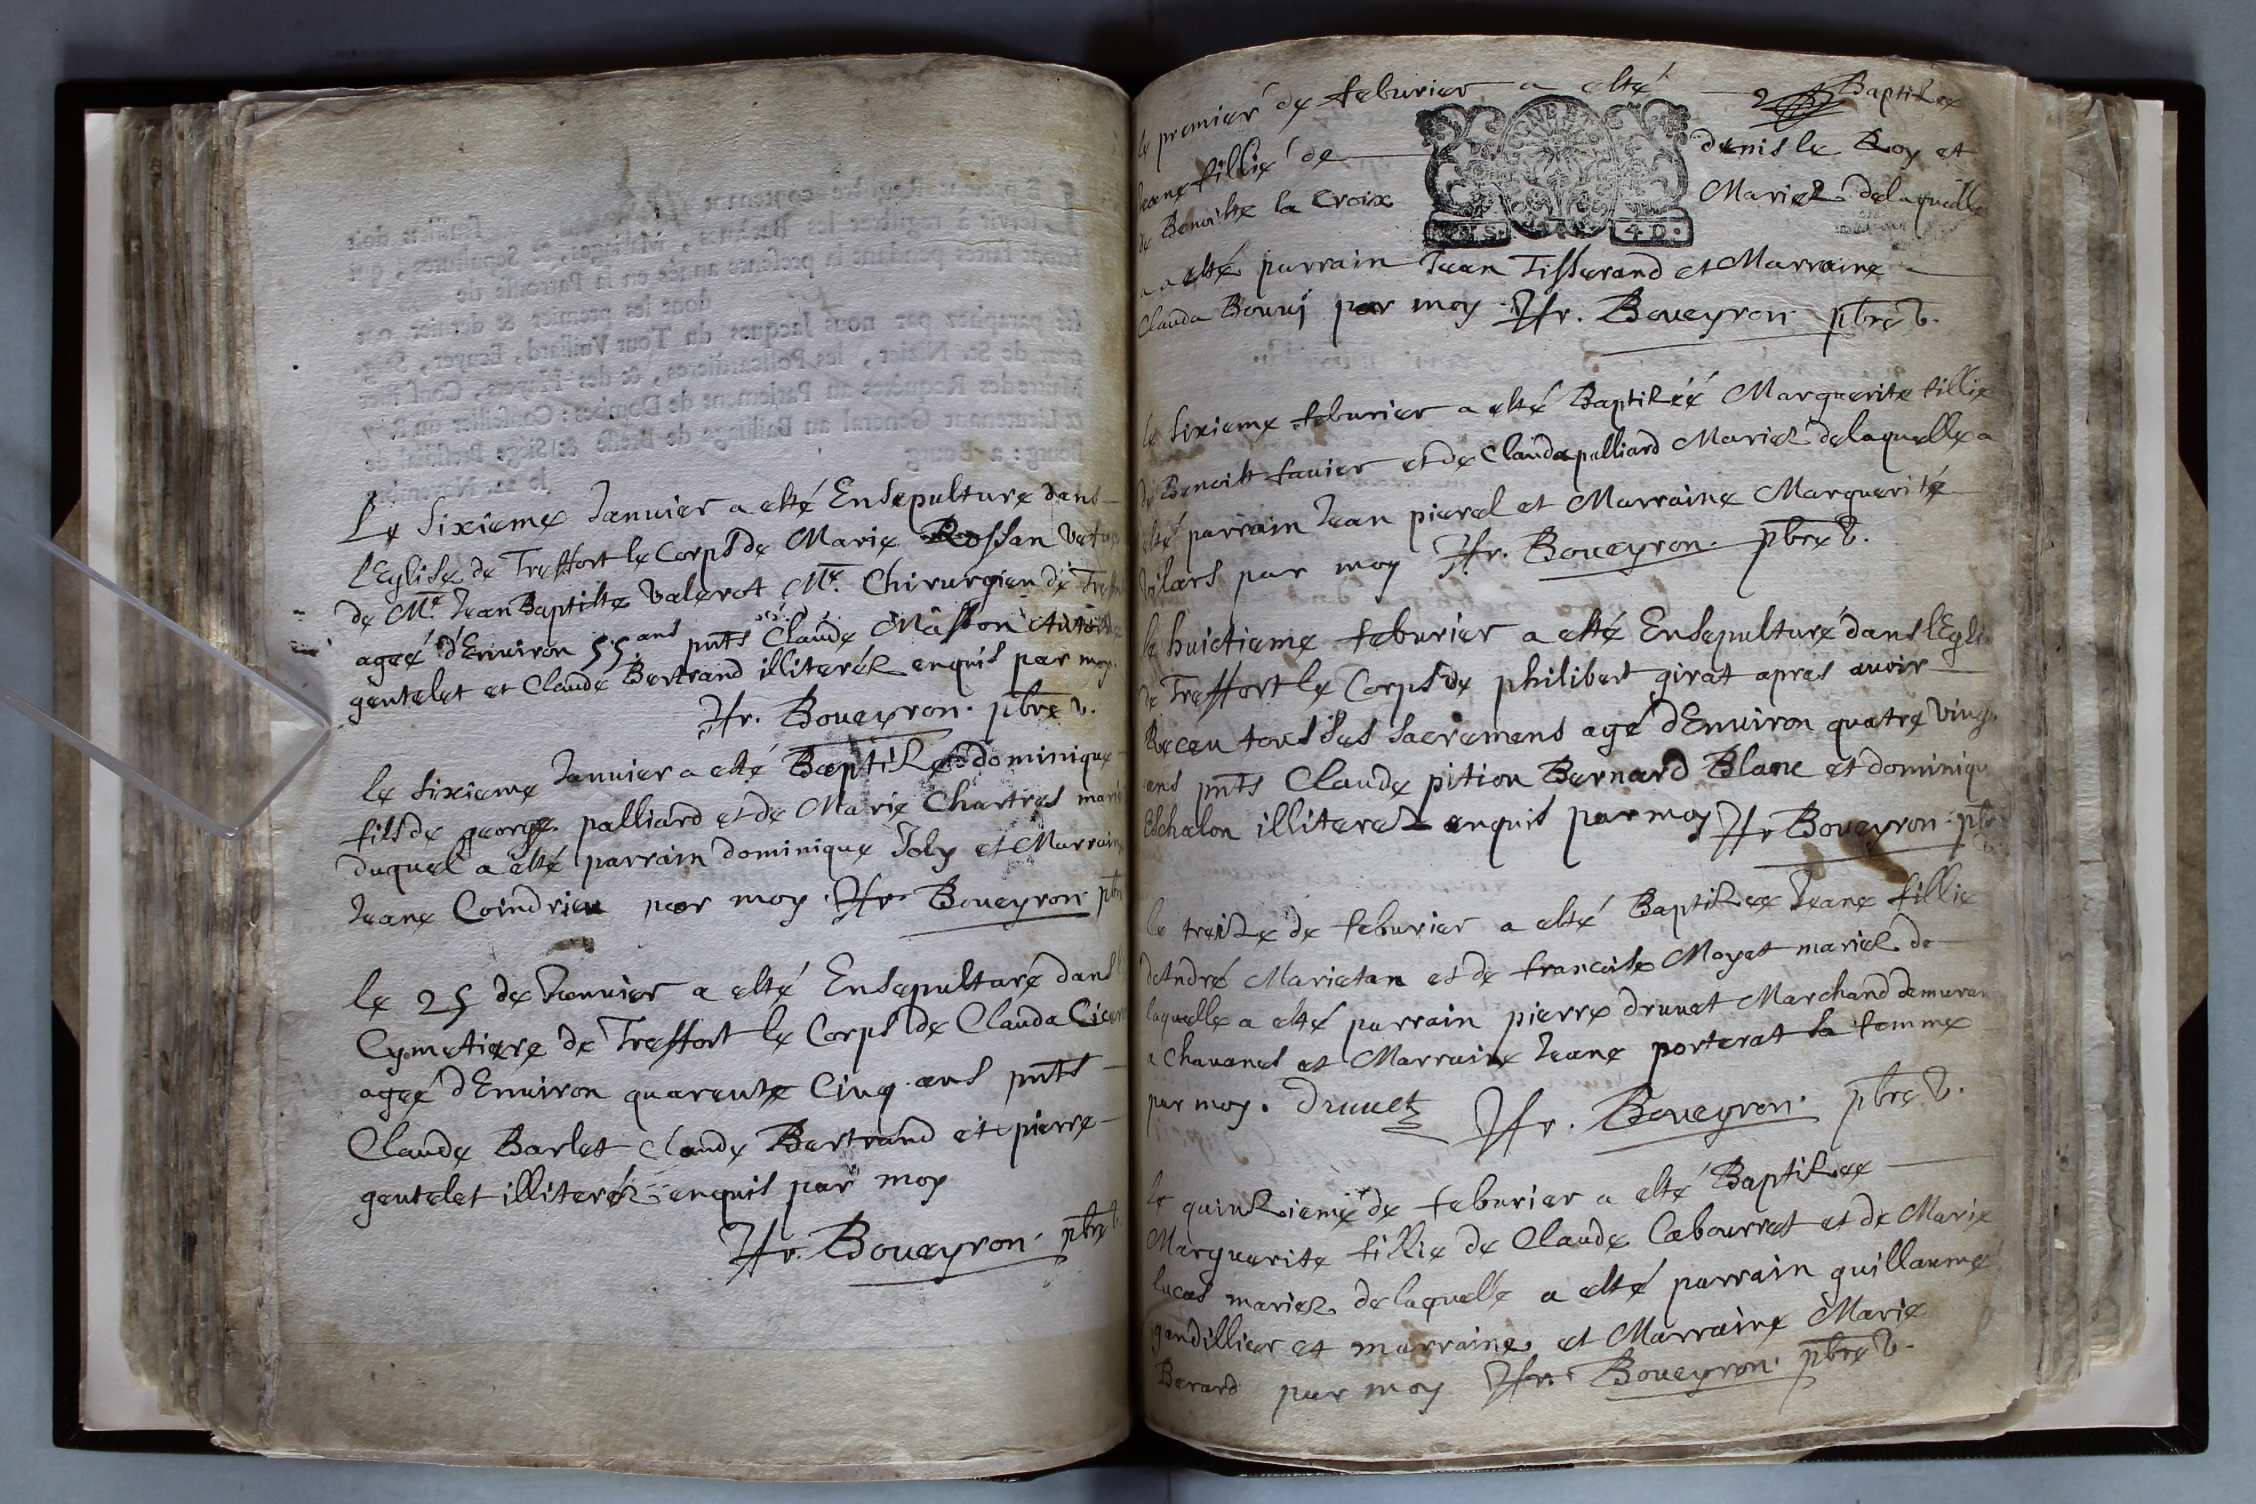 Le Sixieme Januier a esté Ensepulture dans
l'Eglise de Treffort le Corps de Marie Rossan
de Me. Jean Baptiste Valerot Me. Chirurgien de
ageé d'Enuiron 55 ans pnts Claude Maston
gentelet et Claude Bertrand illiteréz enquis par moy.
Fr. Boueyron. pbre v.
le Sixieme Januier a esté Baptizé dominique
fils de george palliard et de Marie Chartres
duquel a esté parrain dominique Joly et Marraine
Jeane Coindrieu par moy Fr. Boueyron
le 25 de Januier a esté Ensepulturé dans
Cymetiere de Treffort le Corps de Clauda
ageé d'Enuiron quarente Cinq ans pnts
Claude Barlet Claude Bertrand et pierre
gentelet illiteréz enquis par moy
Fr. Boueyron. pbre
le premier de feburier a esté Baptizee
Jeane fillie de denis le Roy et
de Benoiste la Croix Mariez delaquelle
a esté parrain Jean Tisserand et Marraine
Clauda par moy Fr. Boueyron pbre v.
4 D.
le Sixieme feburier a esté Baptizéé Marguerite fillie
de Benoist fauier et de Clauda palliard Mariez delaquelle a
esté parrain Jean et Marraine Marguerite
Vilars par moy Fr. Boueyron. pbre v.
le huictieme feburier a esté Ensepulturé dans
de Treffort le Corps de philibert girat apres auoir
Receu tous ses Sacremens agé d'Enuiron quatre
ans pnts Claude pition Bernard Blanc et
Eschalon illiterez enquis par moy Fr Boueyron
le treize de feburier a esté Baptizee Jeane fillie
d'André Marietan et de francoise Moyat mariez de
laquelle a esté parrain pierre druuet Marchand
a Chauanes et Marraine Jeane porterat sa femme
par moy. Druuet Fr. Boueyron. pbre v.
le quinzieme de feburier a esté Baptizee
Marguerite fillie de Claude Cabourret et de Marie
lucas mariez delaquelle a esté parrain guillaume
gandillier et marraine et Marraine Marie
Berard par moy Fr. Boueyron. pbre v.